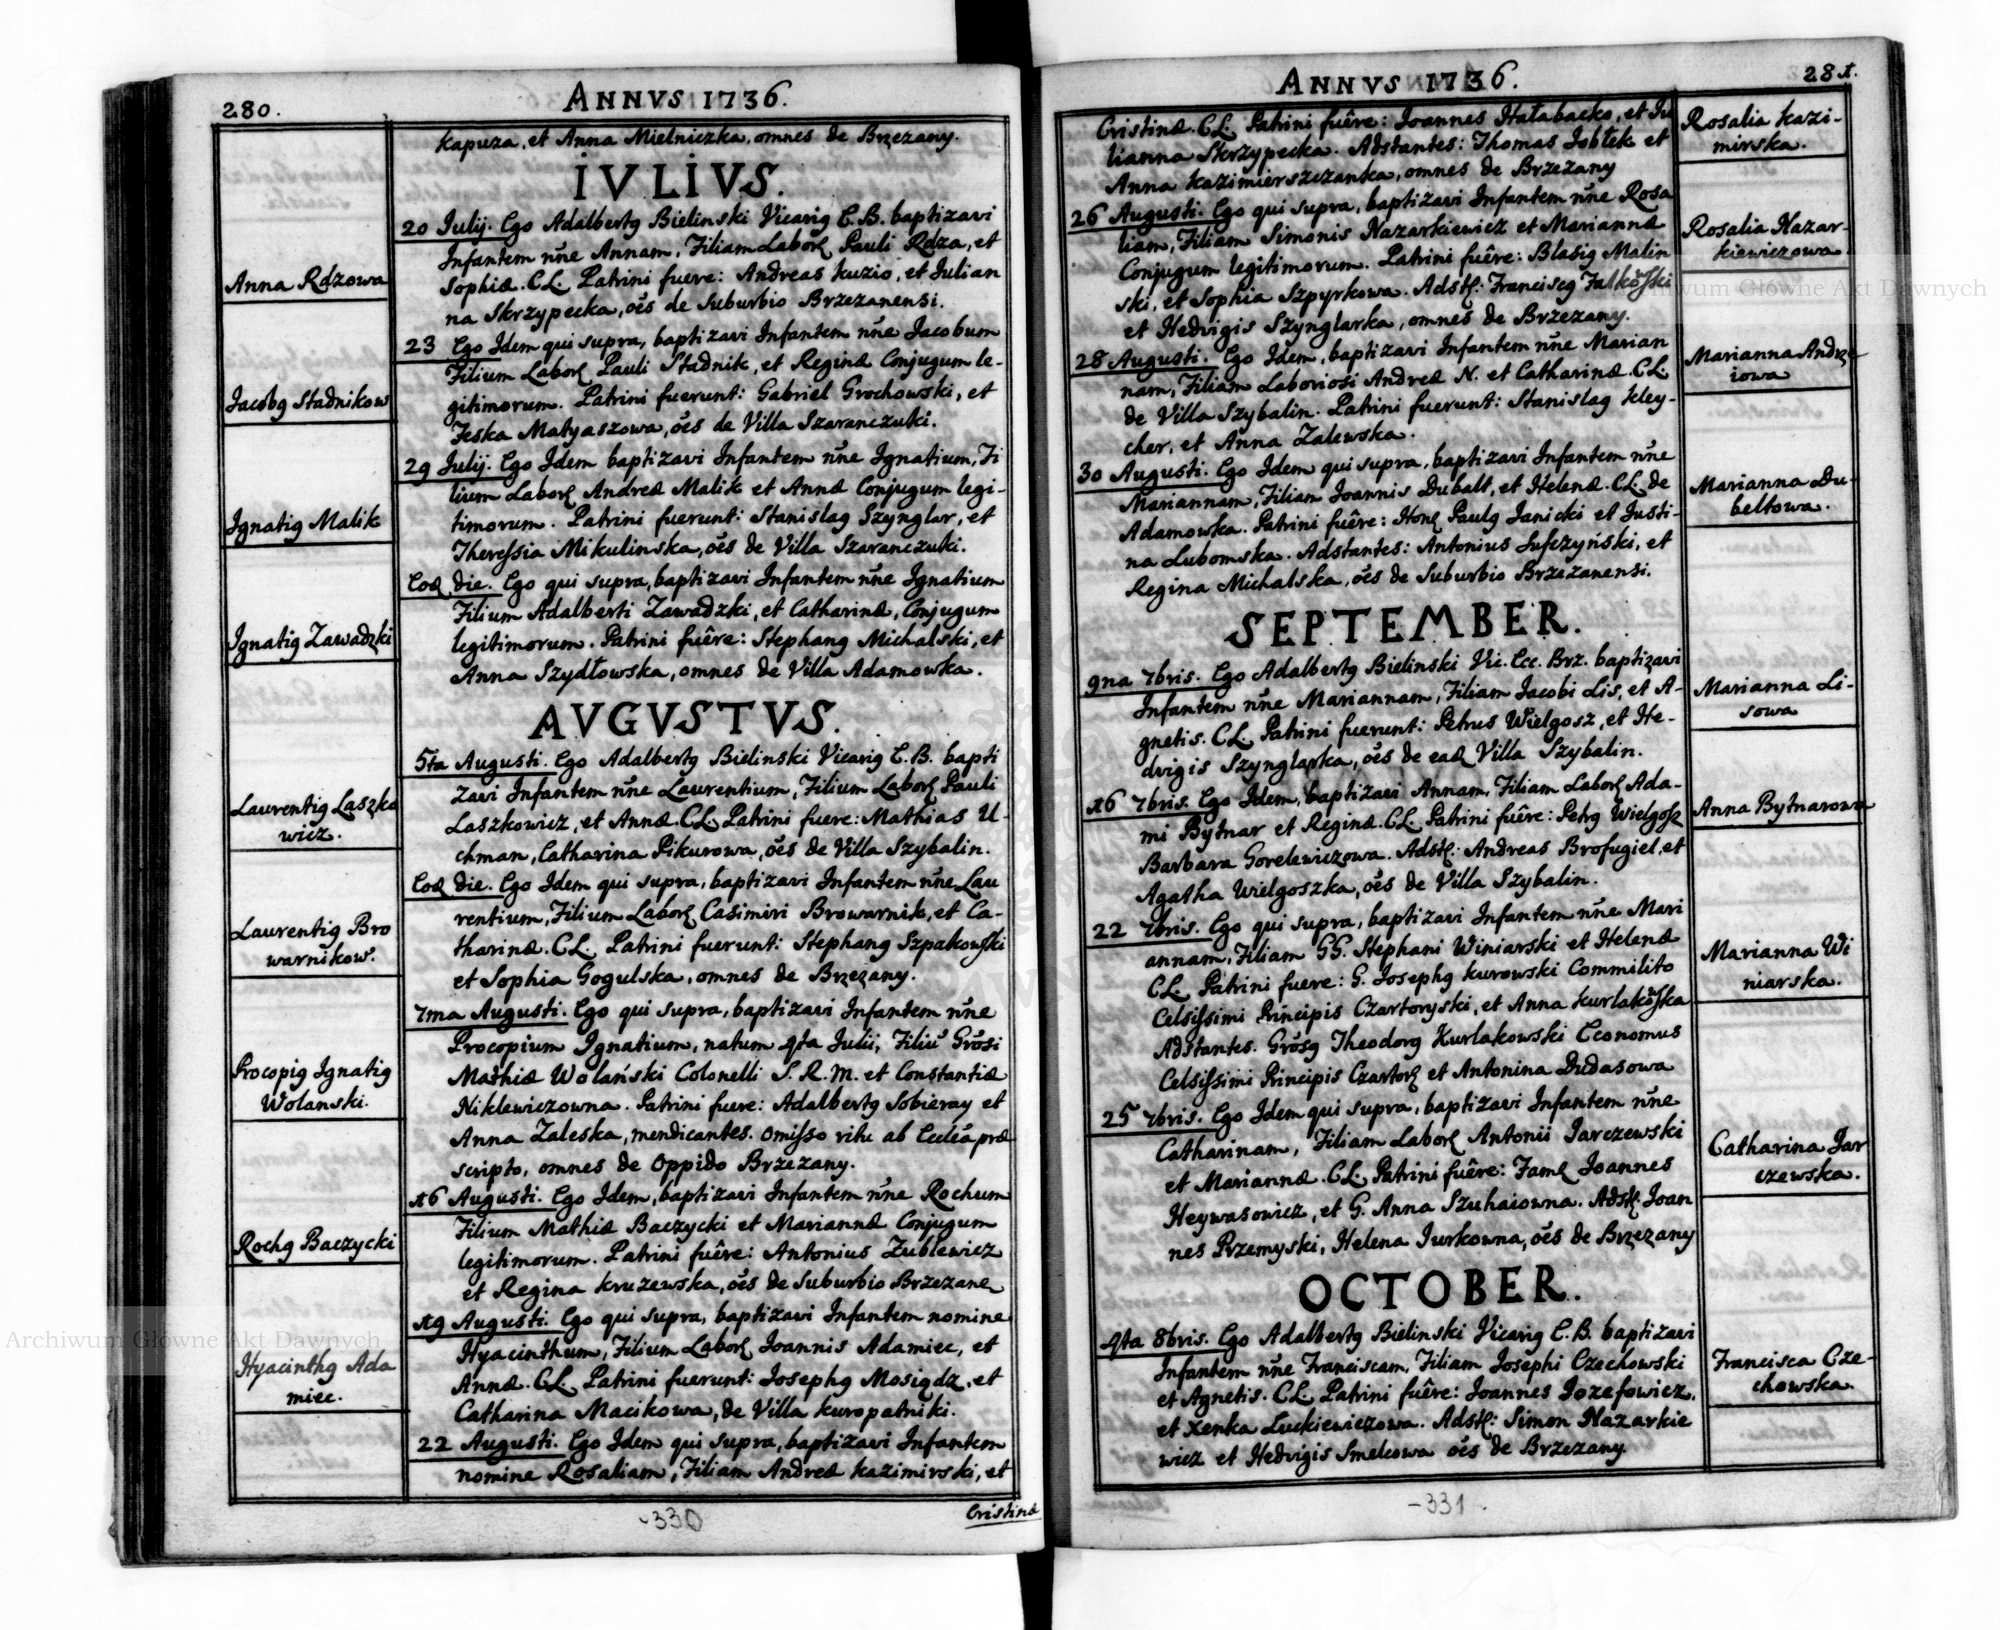 280.
ANNVS 1736.
Kapuza, et Anna Mielniczka, omnes de Brzezany.
IVLIVS.
Anna Rdzowa
20 Julij. Ego Adalbertg Bielinski Vicarig E.B. baptizavi
Infantem nñe Annam, Filiam Labor Pauli Rdza, et
Sophiæ. CL. Patrini fuere: Andreas Kuzio, et Julian
na Skrzypecka, oẽs de Suburbio Brzezanensi.
Jacobg Stadnikow
23 Ego Idem qui supra, baptizavi Infantem nñe Jacobum
Filium Labor Pauli Stadnik, et Reginæ Conjugum le-
gitimorum. Patrini fuerunt: Gabriel Grochowski, et
Jeska Matyaszowa, oẽs de Villa Szaranczuki.
Ignatig Malik
29 Julij. Ego Idem baptizavi Infantem nñe Ignatium, Fi
lium Labor Andreæ Malik et Annæ Conjugum legi-
timorum. Patrini fuerunt: Stanislag Szynglar, et
Theressia Mikulinska, oẽs de Villa Szaranczuki.
Ignatig Zawadzki
Eod die. Ego qui supra, baptizavi Infantem nñe Ignatium
Filium Adalberti Zawadzki, et Catharinæ, Conjugum
legitimorum. Patrini fuêre: Stephang Michalski, et
Anna Szydłowska, omnes de Villa Adamowka.
AVGVSTVS.
Laurentig Laszko
wicz.
5ta Augusti. Ego Adalbertg Bielinski Vicarig E.B. bapti
zavi Infantem nñe Laurentium, Filium Labor Pauli
Laszkowicz, et Annæ. CL. Patrini fuere: Mathias U-
chman, Catharina Pikurowa, oẽs de Villa Szybalin.
Laurentig Bro
warnikow.
Eod die. Ego Idem qui supra, baptizavi Infantem nñe Lau
rentium, Filium Labor Casimiri Browarnik, et Ca-
tharinæ. CL. Patrini fuerunt: Stephang Szpakowski
et Sophia Gogulska, omnes de Brzezany.
Procopig Ignatig
Wolanski.
7ma Augusti. Ego qui supra, baptizavi Infantem nñe
Procopium Ignatium, natum 4ta Julii, Filiũ Grõsi
Mathiæ Wolański Colonelli S. R. M. et Constantiæ
Niklewiczowna. Patrini fuere: Adalbertg Sobieray et
Anna Zaleska, mendicantes. omisso ritu ab Ecclẽa præ
scripto, omnes de Oppido Brzezany.
Rochg Baczycki
16 Augusti. Ego Idem, baptizavi Infantem nñe Rochum
Filium Mathiæ Baczycki et Mariannæ Conjugum
legitimorum. Patrini fuêre: Antonius Zublewicz
et Regina Kruzewska, oẽs de Suburbio Brzezane
Hyacinthg Ada
miec.
19 Augusti. Ego qui supra, baptizavi Infantem nomine
Hyacinthum, Filium Labor Joannis Adamiec, et
Annæ. CL. Patrini fuerunt: Josephg Mosiądz, et
Catharina Macikowa, de Villa Kuropatniki.
22 Augusti. Ego Idem qui supra, baptizavi Infantem
nomine Rosaliam, Filiam Andreæ Kazimirski, et
Cristinæ
-330
ANNVS 1736.
281.
Rosalia Kazi-
mirska.
Cristinæ. CL. Patrini fuêre: Joannes Hałabacko, et Ju
lianna Skrzypecka. Adstantes: Thomas Jobłek et
Anna Kazimierszczanka, omnes de Brzezany
Rosalia Nazar-
kiewiczowa
26 Augusti. Ego qui supra, baptizavi Infantem nñe Rosa
liam, Filiam Simonis Nazarkiewicz et Mariannæ
Conjugum legitimorum. Patrini fuêre: Blasig Malin
ski, et Sophia Szpyrkowa. Adst: Franciscg Falkowski
et Hedvigis Szynglarka, omnes de Brzezany.
Marianna Andre
iowa
28 Augusti. Ego Idem, baptizavi Infantem nñe Marian
nam, Filiam Laboriosi Andreæ N. et Catharinæ. CL.
de Villa Szybalin. Patrini fuerunt: Stanislag Kley-
cher, et Anna Zalewska.
Marianna Du-
beltowa.
30 Augusti. Ego Idem qui supra, baptizavi Infantem nñe
Mariannam, Filiam Joannis Dubalt, et Helenæ. CL. de
Adamowka. Patrini fuêre: Hon Paulg Janicki et Justi-
na Lubomska. Adstantes: Antonius Sufczyński, et
Regina Michalska, oẽs de Suburbio Brzezanensi.
SEPTEMBER.
Marianna Li-
sowa
9na 7bris. Ego Adalbertg Bielinski Vic. Ecc. Brz. baptizavi
Infantem nñe Mariannam, Filiam Jacobi Lis, et A-
gnetis. CL. Patrini fuerunt: Petrus Wielgosz, et He-
dvigis Szynglarka, oẽs de ead Villa Szybalin.
Anna Bytnarowna
16 7bris. Ego Idem, baptizavi Annam, Filiam Labor Ada-
mi Bytnar et Reginæ. CL. Patrini fuêre: Petrg Wielgosz
Barbara Gorelewiczowa. Adst: Andreas Brofugiel, et
Agatha Wielgoszka, oẽs de Villa Szybalin.
Marianna Wi
niarska.
22 7bris. Ego qui supra, baptizavi Infantem nñe Mari
annam, Filiam GG. Stephani Winiarski et Helenæ
CL. Patrini fuere: G. Josephg Kurowski Commilito
Celsissimi Principis Czartoryski, et Anna Kurlakowska
Adstantes. Grõsg Theodorg Kurlakowski Economus
Celsissimi Principis Czartor et Antonina Dudasowa
Catharina Jar
czewska.
25 7bris. Ego Idem qui supra, baptizavi Infantem nñe
Catharinam, Filiam Labor Antonii Jarczewski
et Mariannæ. CL. Patrini fuêre: Fam Joannes
Heywasowicz, et G. Anna Szuhaiowna. Adst. Joan
nes Przemyski, Helena Jurkowna, oẽs de Brzezany
OCTOBER.
Francisca Cze-
chowska.
4ta 8bris. Ego Adalbertg Bielinski Vicarig E.B. baptizavi
Infantem nñe Franciscam, Filiam Josephi Czechowski
et Agnetis. CL. Patrini fuêre: Joannes Jozefowicz,
et Xenka Luckiewiczowa. Adst: Simon Nazarkie
wicz et Hedvigis Smelcowa oẽs de Brzezany
-331.
Archiwum Główne Akt Dawnych
Archiwum Główne Akt Dawnych